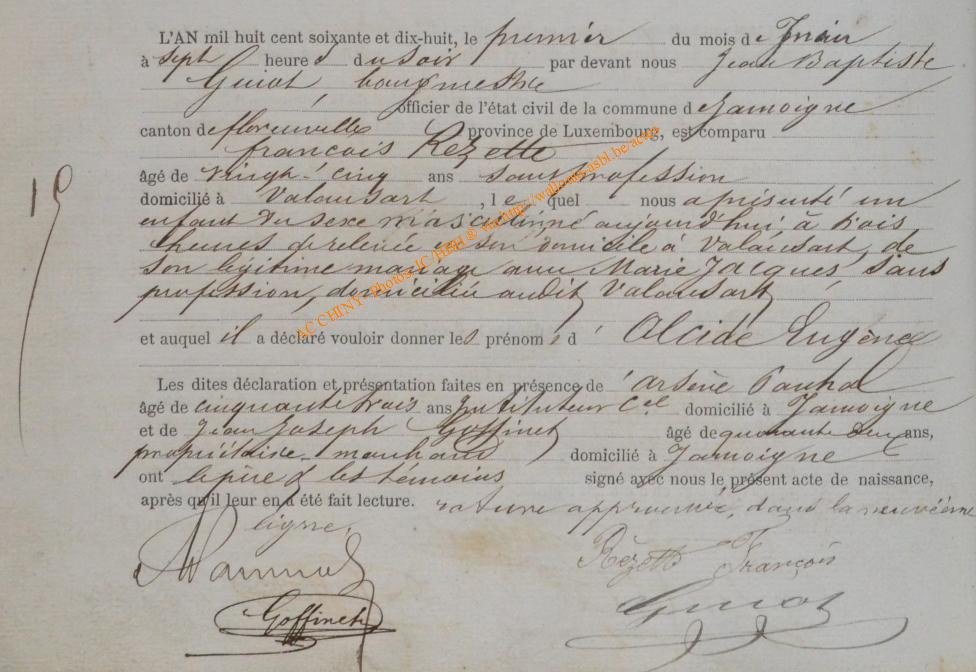 L'AN mil huit cent soixante et dix-huit, le premier du mois de Juin
à sept heures du soir par devant nous Jean Baptiste
Guiot bourgmestre
officier de l'état civil de la commune de Jamoigne
canton de florenville province de Luxembourg, est comparu
françois Rézette
âgé de vingt-cinq ans sans profession
domicilié à Valansart, lequel nous a présenté un
enfant du sexe masculin né aujourd'hui, à trois
heures de relevée en son domicile à Valansart, de
son légitime mariage avec Marie Jacques, sans
profession, domiciliée audit Valansart
et auquel il a déclaré vouloir donner les prénoms d' Alcide Eugène
Les dites déclaration et présentation faites en présence de Arsène
âgé de cinquante trois ans Instituteur cel domicilié à Jamoigne
et de Jean Joseph Goffinet âgé de quarante deux ans,
propriétaire marchand domicilié à Jamoigne
ont le père & les témoins signé avec nous le présent acte de naissance,
après qu'il leur en a été fait lecture. rature approuvée, dans la neuvième
ligne.
Rézette François
Goffinet
Guiot
AC CHINY - Photos JC/HBH ® via http://wallonia.asbl.be/actes